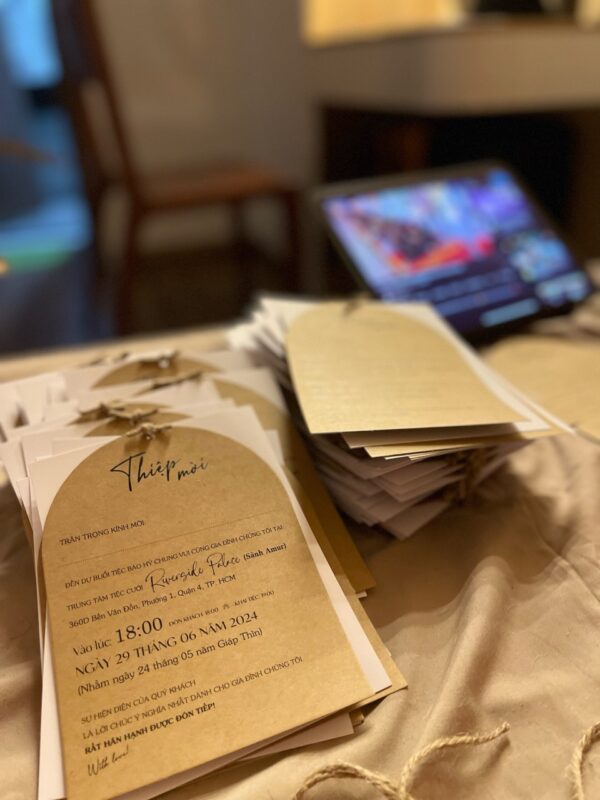 Thiệp mời
TRÂN TRỌNG KÍNH MỜI
ĐẾN DỰ BUỔI TIỆC BÁO HỶ CHUNG VUI CÙNG GIA ĐÌNH CHÚNG TÔI TẠI
TRUNG TÂM TIỆC CƯỚI Riverside Palace (Sảnh Amur)
360D Bến Vân Đồn, Phường 1, Quận 4, TP. HCM
Vào lúc 18:00 ĐÓN KHÁCH 18:00 KHAI TIỆC
NGÀY 29 THÁNG 06 NĂM 2024
(Nhằm ngày 24 tháng 05 năm Giáp Thìn)
SỰ HIỆN DIỆN CỦA QUÝ KHÁCH
LÀ LỜI CHÚC Ý NGHĨA NHẤT DÀNH CHO GIA ĐÌNH CHÚNG TÔI.
RẤT HÂN HẠNH ĐƯỢC ĐÓN TIẾP!
With love!